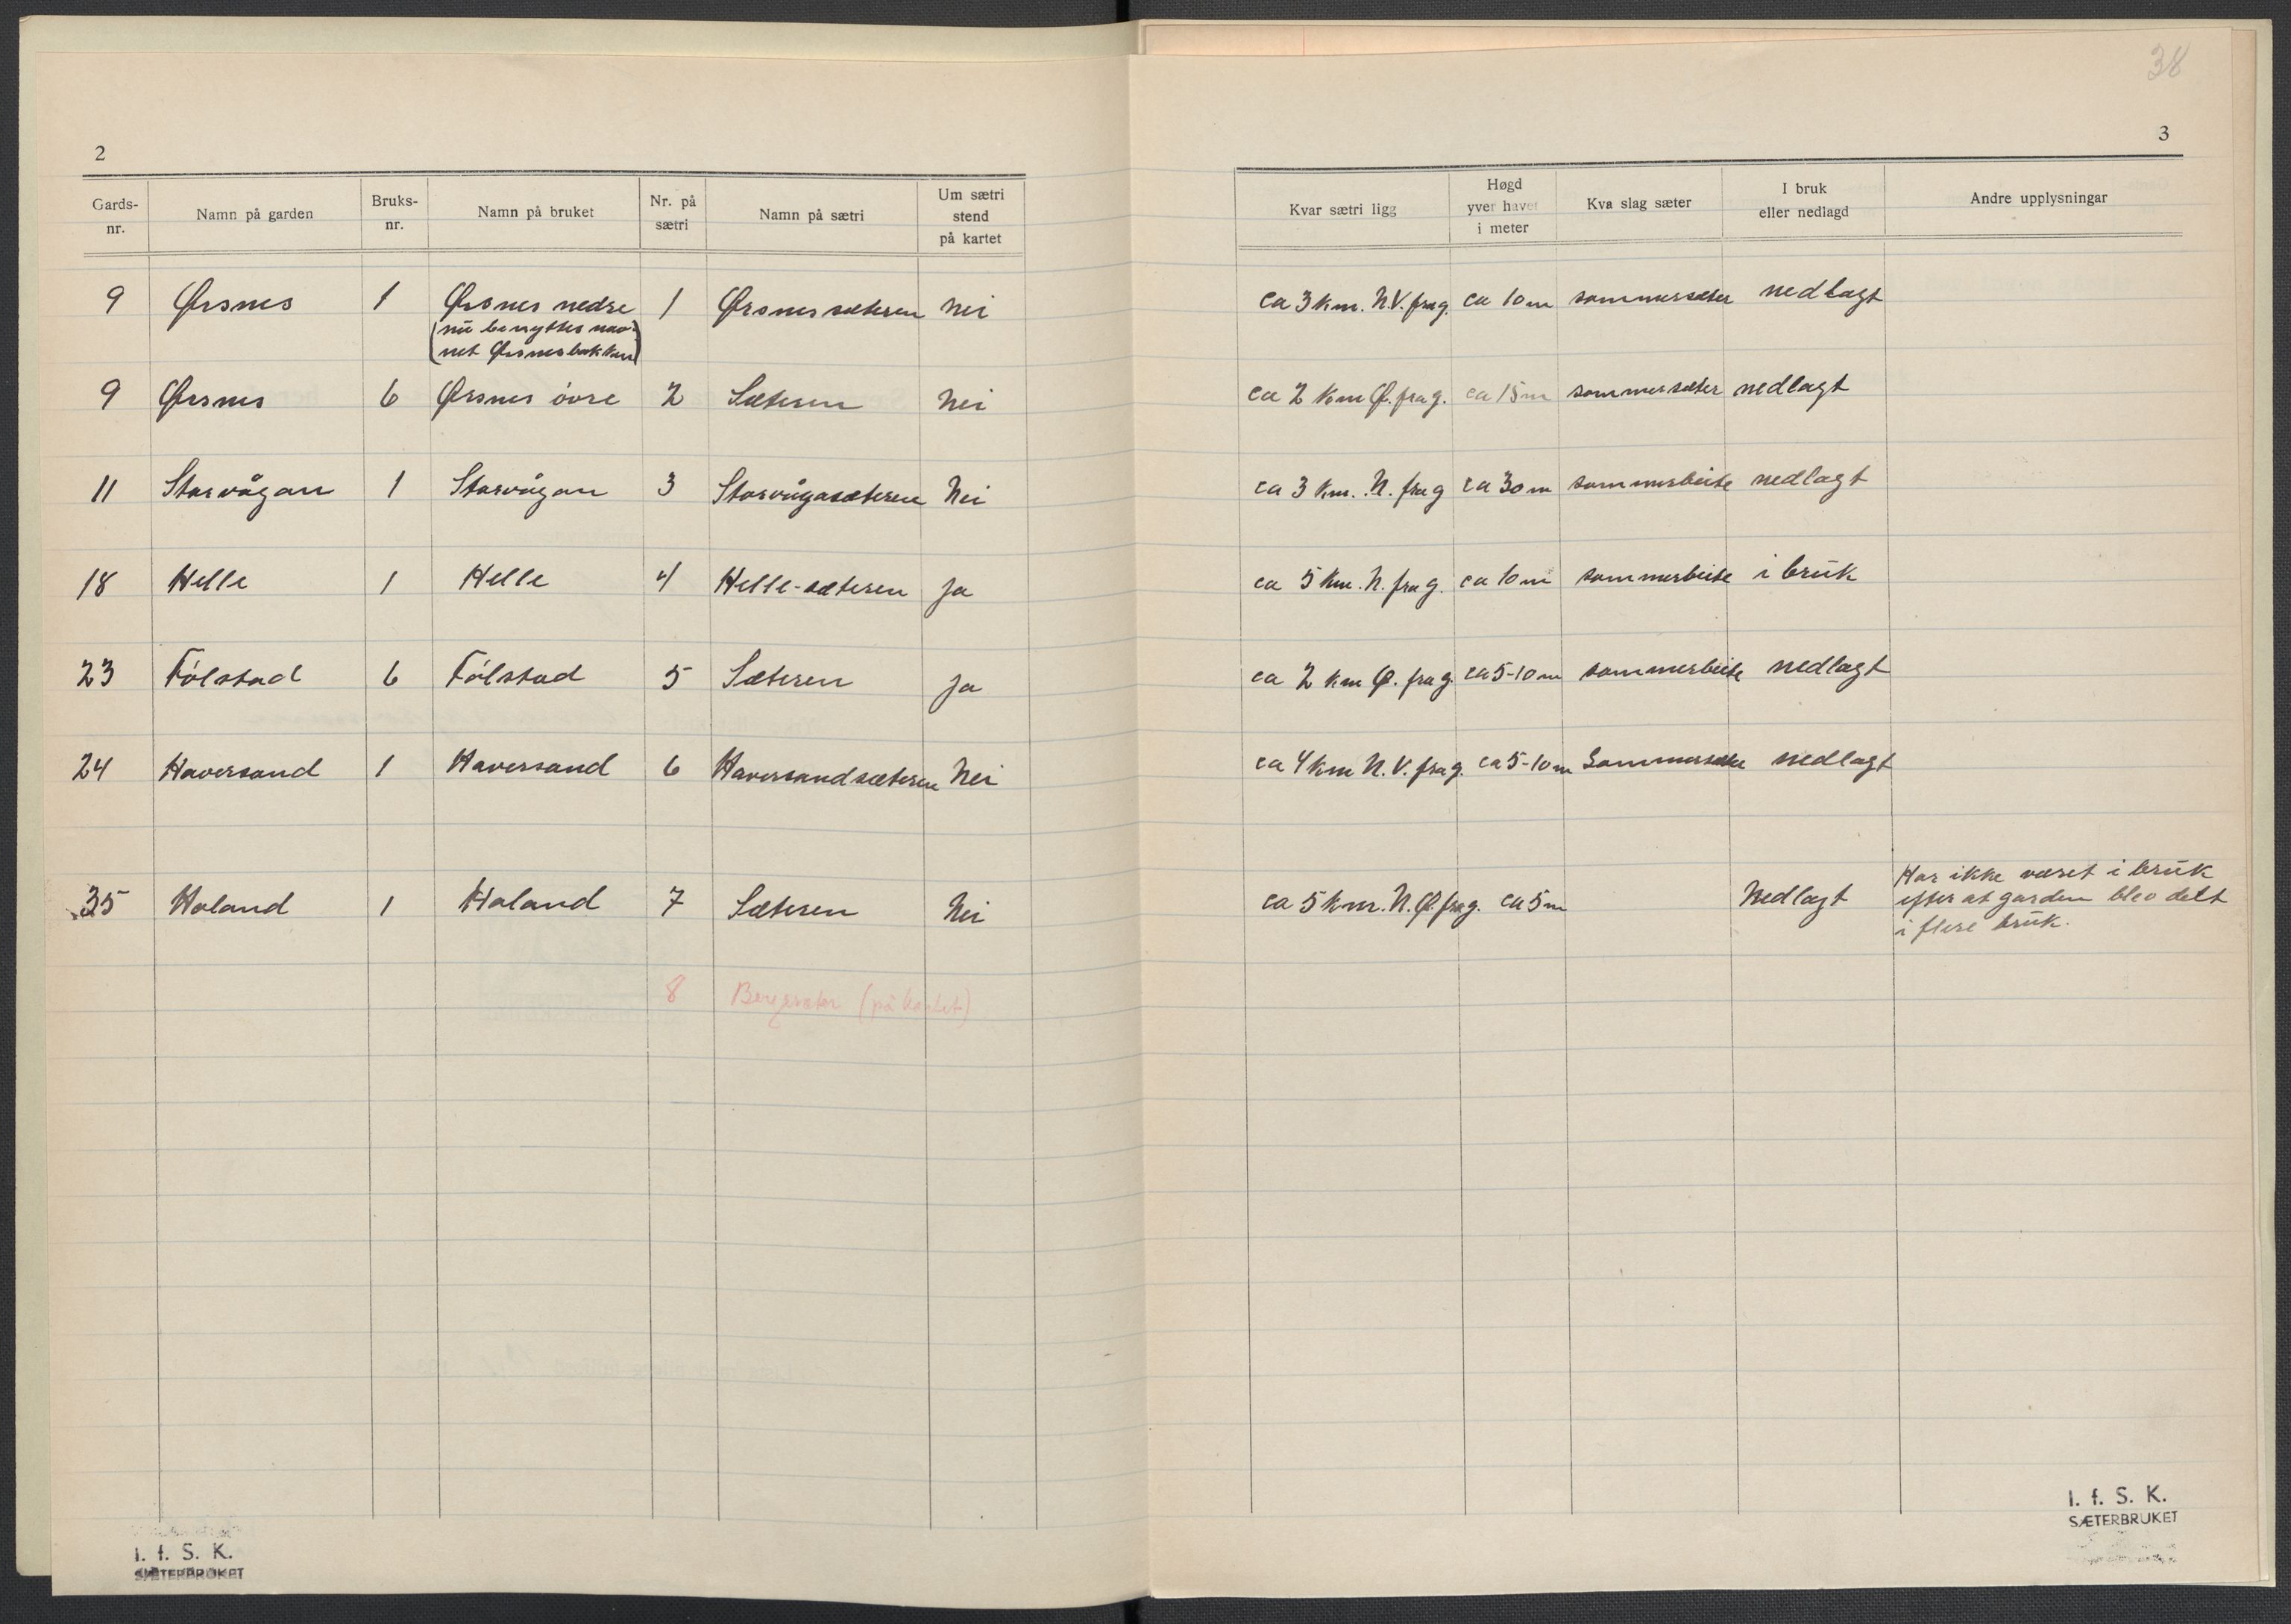 38
2
3
Gards-nr. Namn på garden Bruks-nr. Namn på bruket Nr. på sætri Namn på sætri Um sætri stend på kartet Kvar sætri ligg Høgd yver havet i meter Kva slag sæter I bruk eller nedlagd Andre upplysningar
9 Ørsnes 1 Ørsnes nedre 1 Ørsnessæteren Nei ca 3 km. N.V. fra g. ca 10 m sommersæter nedlagt
(nu benyttes nav-
net Ørsnesbakken)
9 Ørsnes 6 Ørsnes övre 2 Sæteren Nei ca 2 km Ø. fra g. ca 15 m sommersæter nedlagt
11 Storvågan 1 Storvågan 3 Storvågasæteren Nei ca 3 km. N. fra g ca 30 m sommerbeite nedlagt
18 Helle 1 Helle 4 Helle-sæteren Ja ca 5 km. N. fra g. ca 10 m sommerbeite i bruk
23 Fölstad 6 Fölstad 5 Sæteren Ja ca 2 km Ø. fra g. ca 5-10 m sommerbeite nedlagt
24 Haversand 1 Haversand 6 Haversandsæteren Nei ca 4 km N.V. fra g. ca 5-10 m Sommersæter nedlagt
35 Holand 1 Holand 7 Sæteren Nei ca 5 km. N.Ø. fra g. ca 5 m Nedlagt Har ikke været i bruk
efter at garden blev delt
i flere bruk.
8 Bergsæter (på kartet)
I. f. S. K.
SÆTERBRUKET
I. f. S. K.
SÆTERBRUKET